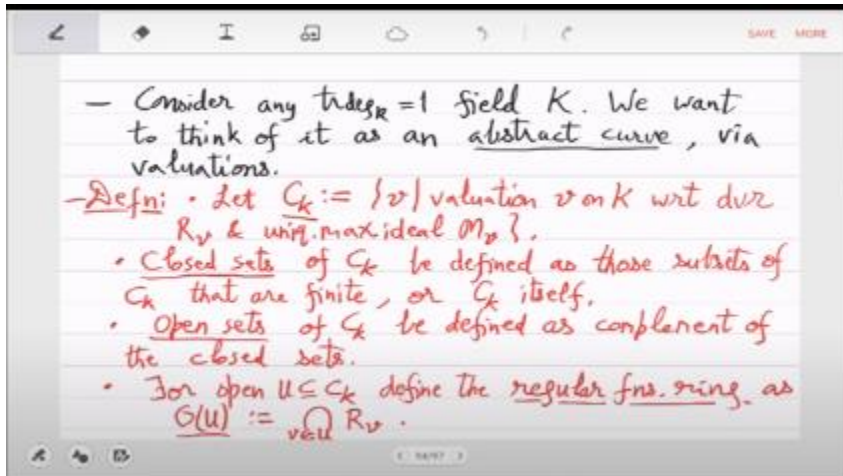 SAVE MORE
– Consider any trdeg_k = 1 field K. We want
to think of it as an abstract curve, via
valuations.
– Defn: • Let C_K := {v | valuation v on K wrt dvr
R_v & uniq. max ideal M_v}.
• Closed sets of C_K be defined as those subsets of
C_K that are finite, or C_K itself.
• Open sets of C_K be defined as complement of
the closed sets.
• For open U ⊆ C_K define the regular fns. ring as
O(U) := ⋂_{v∈U} R_v.